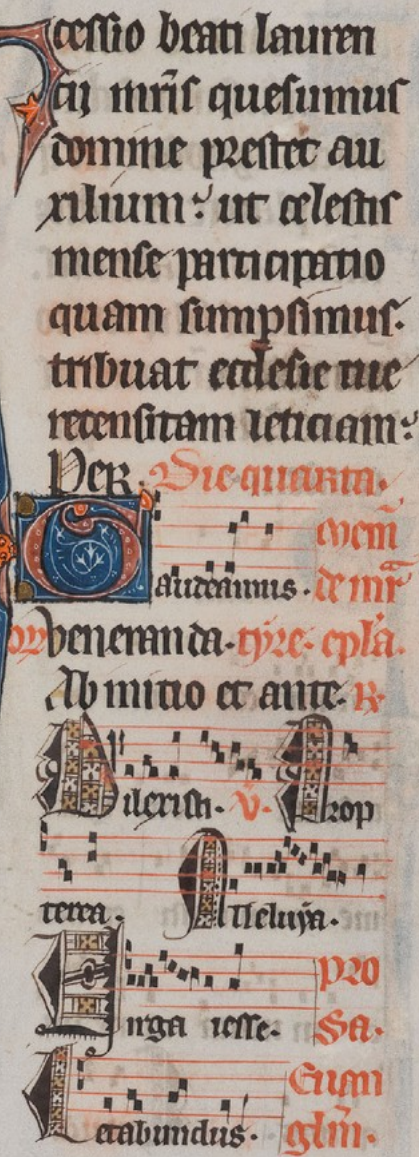 cessio beati lauren
cij mris quesumus
domine prestet au
xilium: ut celestis
mense participatio
quam sumpsimus.
tribuat ecclesie tue
recensitam leticiam:
Per. Die quarta.
Gaudeamus. de mr
Veneranda. epla.
Ab initio et ante. R.
Dilexisti. V. Prop
terea. Alleluya.
Virga iesse. Pro
sa.
Letabundus. Euan
glm.